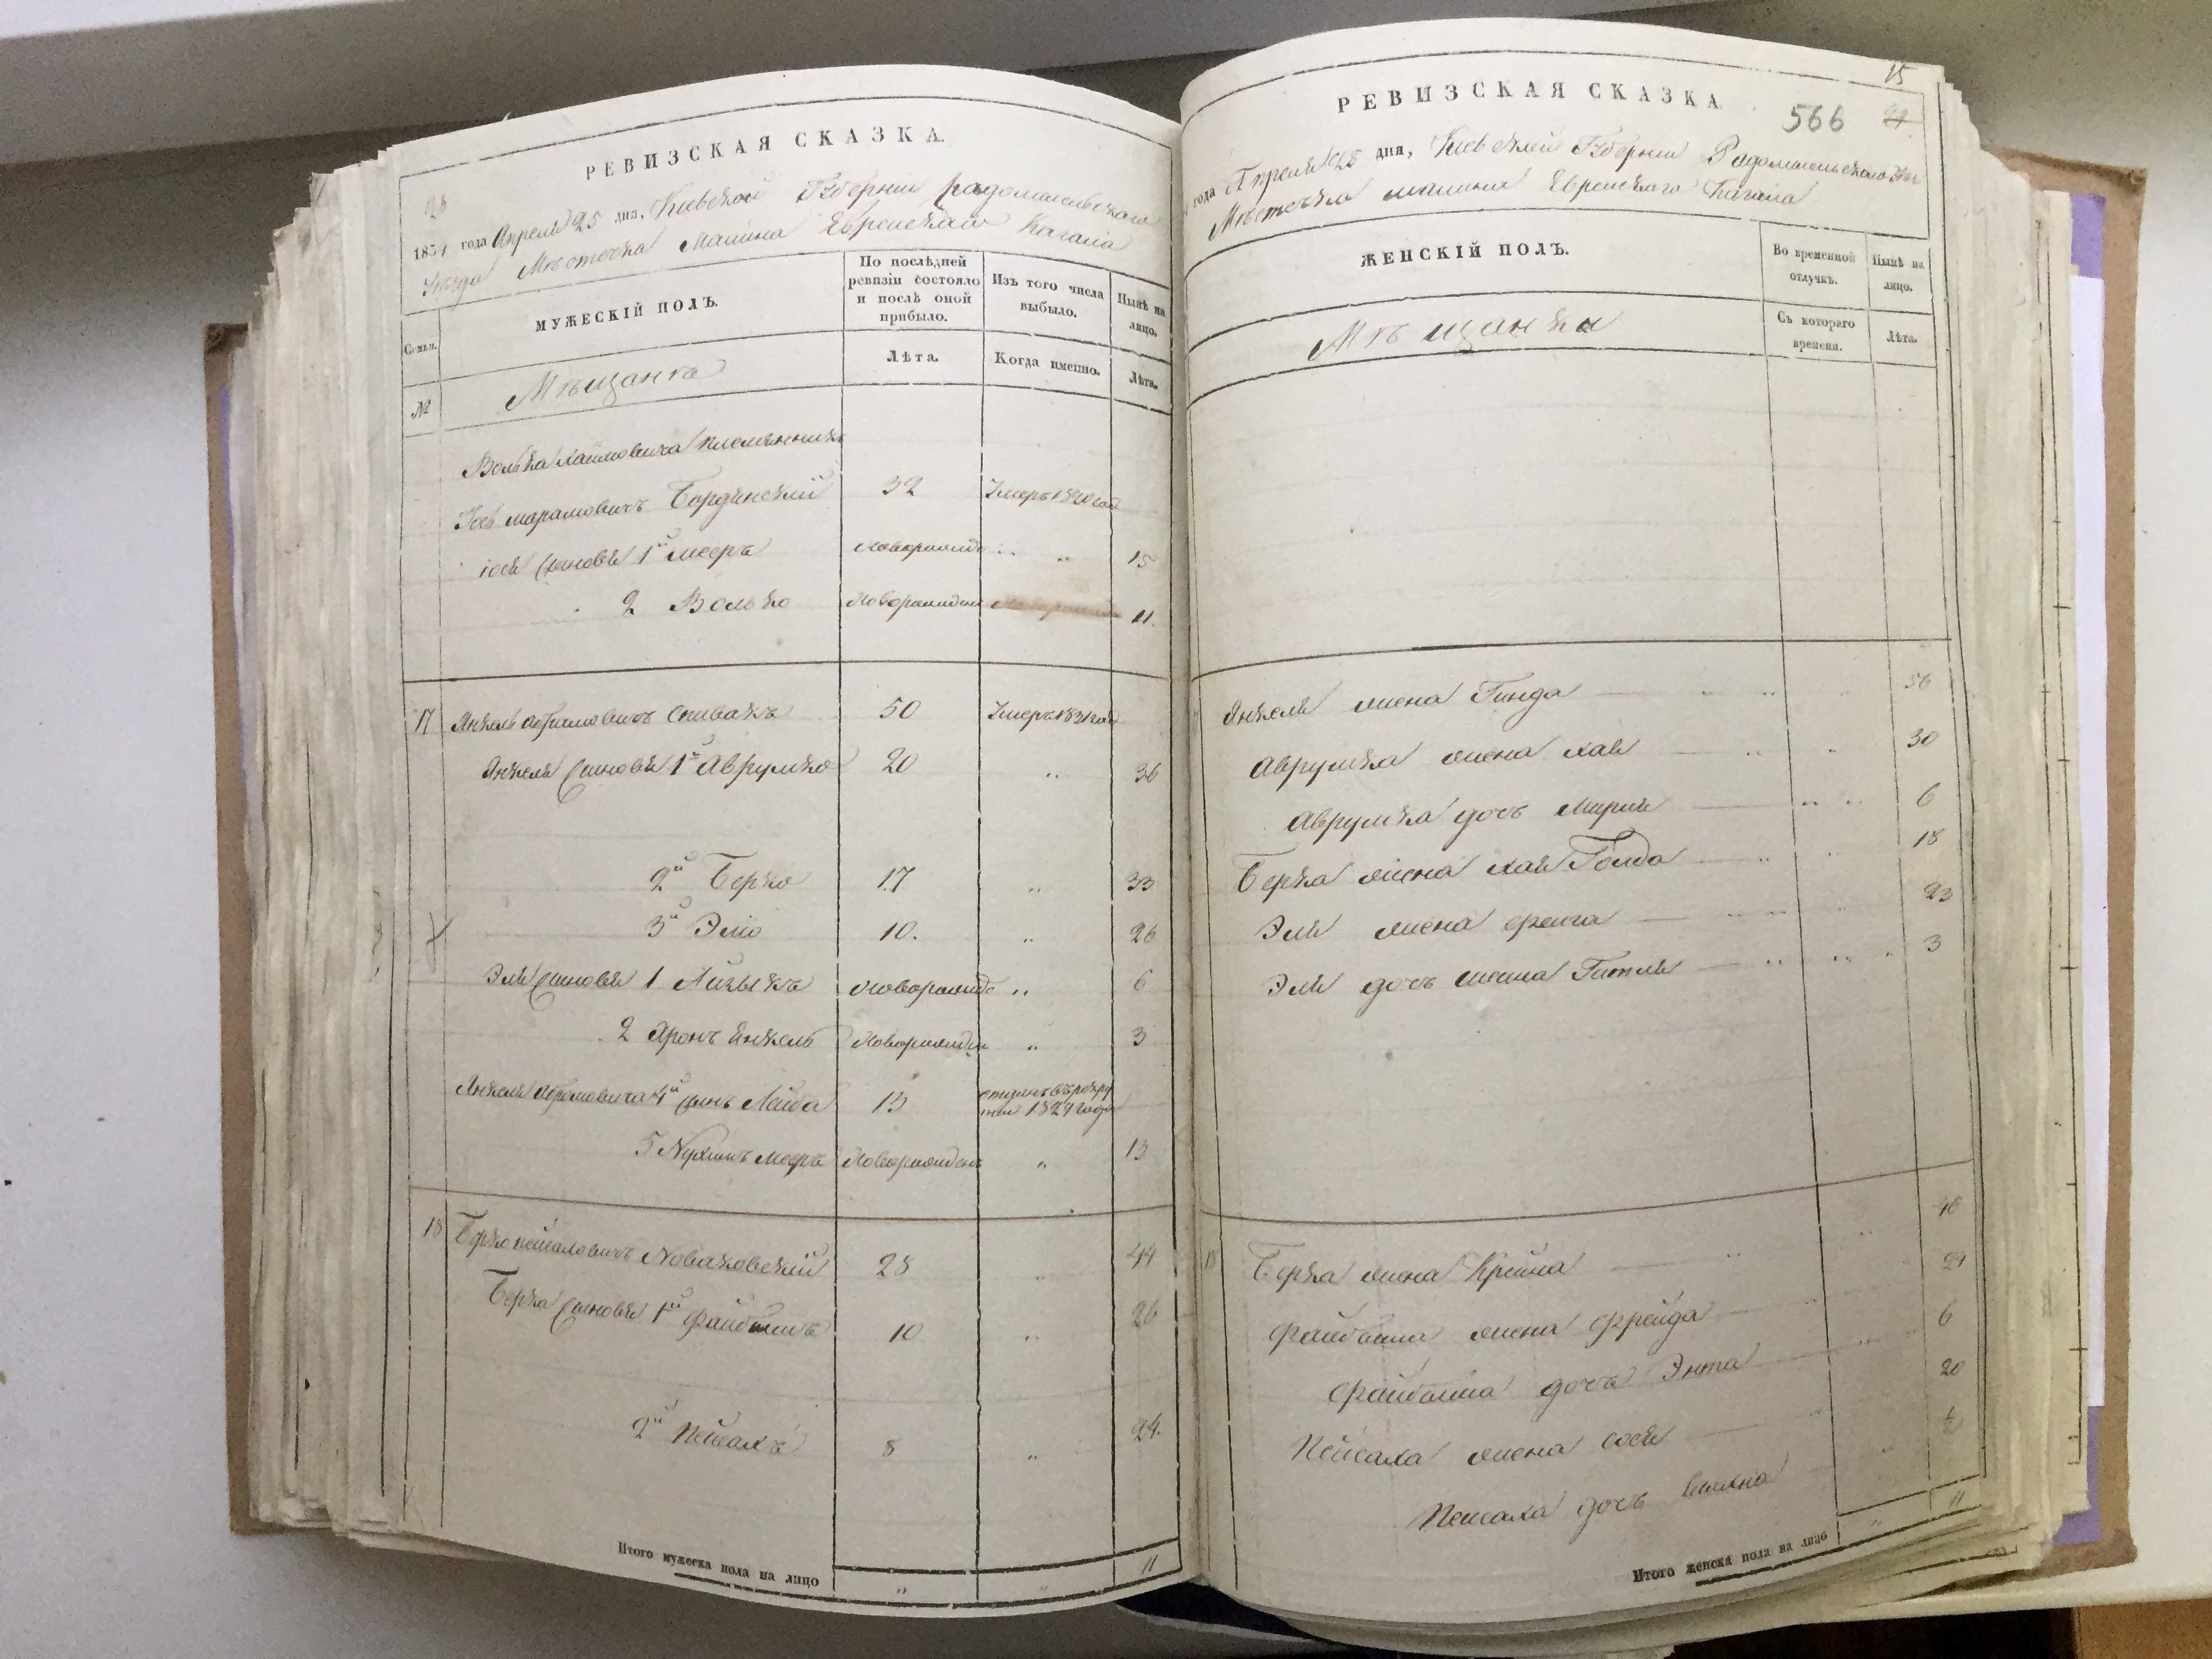 РЕВИЗСКАЯ СКАЗКА.
28
1834 года Апреля 25 дня, Киевской Губернии радомысльскаго
уезда Местечка Малина Еврейскаго Кагала
Семьи.
МУЖЕСКІЙ ПОЛЪ.
По послѣдней ревизіи состояло и послѣ оной прибыло.
Изъ того числа выбыло.
Нынѣ на лицо.
№
Мѣщанѣ
Лѣта.
Когда именно.
Лѣта.
Волька Хаимовича племянникъ
Іось марамовичъ 32 Умеръ 1820 год
іося сыновья 1й мееръ Новорожде „ 15
2 Волько Новорожден 11.
17 Янкель Абрамовичъ Спивакъ 50 Умеръ 1831 года
Янкеля сыновья 1й Аврумко 20 „ 36
2й Берко 17 „ 33
3й Эліо 10. „ 26
Эли сыновья 1 Айзыкъ Новорожде „ 6
2 Аронъ Янкель Новорожден „ 3
Янкеля Абрамовича 4й сынъ Лейба 13 отданъ въ рекру
ты 1827 года
5 Нухимъ мееръ Новорожден „ 13
18 Берко пейсаховичъ Новаковскій 28 „ 44
Берка сыновья 1й Файбишъ 10 „ 26
2й Пейсахъ 8 „ 24.
Итого мужеска пола на лицо „ „ 11
15
РЕВИЗСКАЯ СКАЗКА
566
года Апреля 25 дня, Киевской Губернии Радомысльскаго
Местечка малина Еврейскаго Кагала
ЖЕНСКІЙ ПОЛЪ.
Во временной отлучкѣ.
Нынѣ на лицо.
Мѣщанки
Съ котораго времени.
Лѣта.
Янкеля жена Гинда „ „ „ 56
Аврумка жена хая „ „ 30
Аврумка дочь Мирля „ „ 6
Берка жена хая Голда „ „ 18
Эли жена фейга „ „ „ 23
Эли дочь Гитля „ „ „ 3
18 Берка жена Крейна „ „ 46
Файбиша жена Фрейда 24
Файбиша дочь Энта „ 6
Пейсаха жена сося 20
Пейсаха дочь
Итого женска пола на лицо „ 11